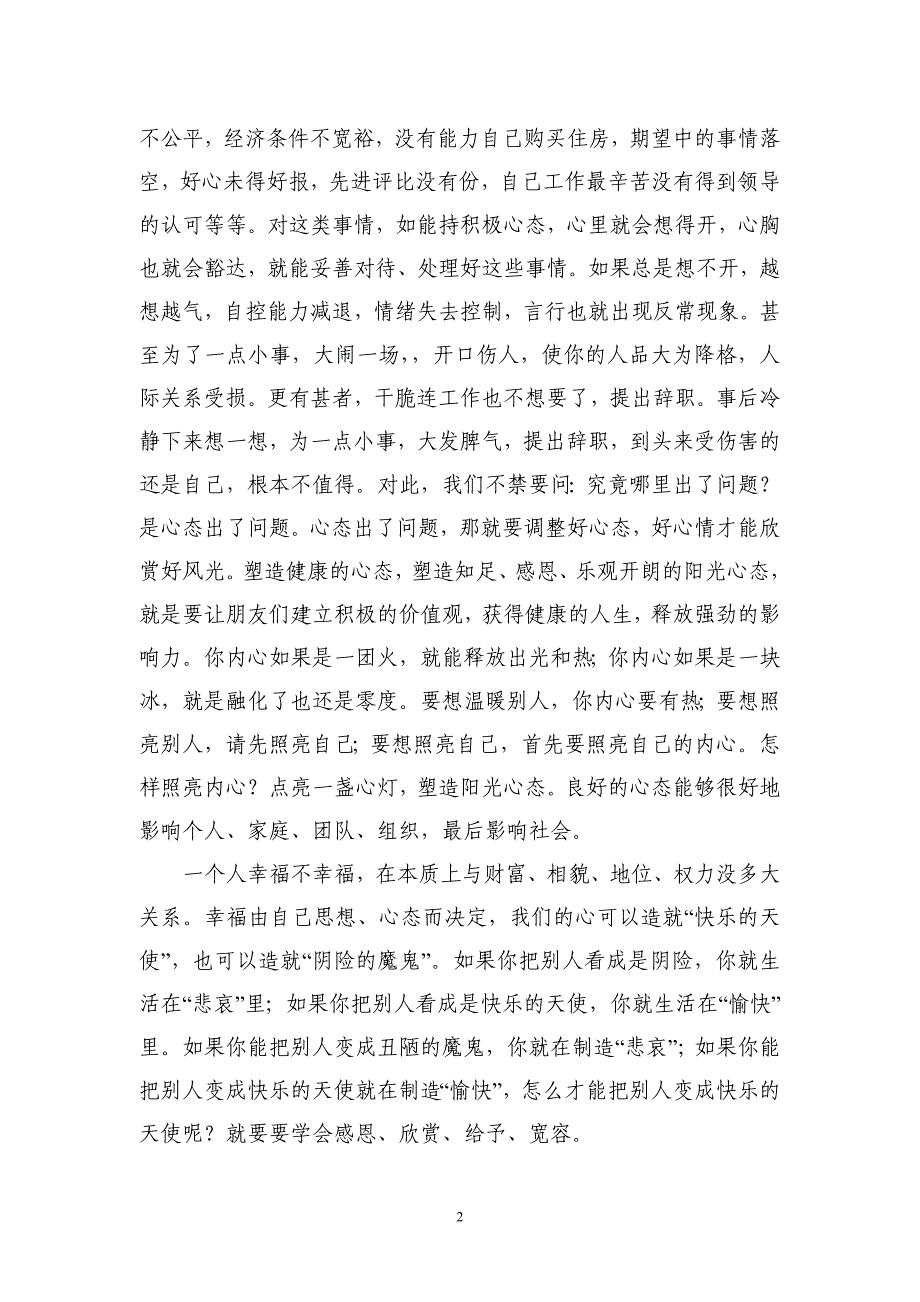 不公平，经济条件不宽裕，没有能力自己购买住房，期望中的事情落
空，好心未得好报，先进评比没有份，自己工作最辛苦没有得到领导
的认可等等。对这类事情，如能持积极心态，心里就会想得开，心胸
也就会豁达，就能妥善对待、处理好这些事情。如果总是想不开，越
想越气，自控能力减退，情绪失去控制，言行也就出现反常现象。甚
至为了一点小事，大闹一场，，开口伤人，使你的人品大为降格，人
际关系受损。更有甚者，干脆连工作也不想要了，提出辞职。事后冷
静下来想一想，为一点小事，大发脾气，提出辞职，到头来受伤害的
还是自己，根本不值得。对此，我们不禁要问：究竟哪里出了问题？
是心态出了问题。心态出了问题，那就要调整好心态，好心情才能欣
赏好风光。塑造健康的心态，塑造知足、感恩、乐观开朗的阳光心态，
就是要让朋友们建立积极的价值观，获得健康的人生，释放强劲的影
响力。你内心如果是一团火，就能释放出光和热；你内心如果是一块
冰，就是融化了也还是零度。要想温暖别人，你内心要有热；要想照
亮别人，请先照亮自己；要想照亮自己，首先要照亮自己的内心。怎
样照亮内心？点亮一盏心灯，塑造阳光心态。良好的心态能够很好地
影响个人、家庭、团队、组织，最后影响社会。
一个人幸福不幸福，在本质上与财富、相貌、地位、权力没多大
关系。幸福由自己思想、心态而决定，我们的心可以造就“快乐的天
使”，也可以造就“阴险的魔鬼”。如果你把别人看成是阴险，你就生
活在“悲哀”里；如果你把别人看成是快乐的天使，你就生活在“愉快”
里。如果你能把别人变成丑陋的魔鬼，你就在制造“悲哀”；如果你能
把别人变成快乐的天使就在制造“愉快”，怎么才能把别人变成快乐的
天使呢？就要要学会感恩、欣赏、给予、宽容。
2